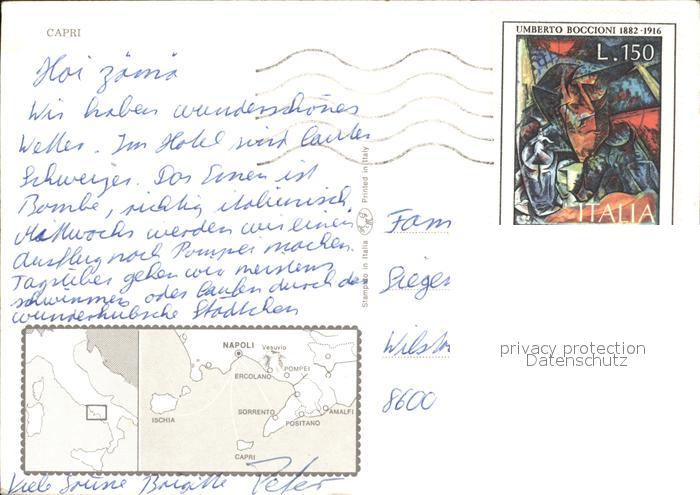 CAPRI
UMBERTO BOCCIONI 1882-1916
L.150
ITALIA
Hoi zämä
Wir haben wunderschönes
Wetter. Im Hotel sind lauter
Schweizer. Das Essen ist
Bombe, richtig italienisch
Mittwochs werden wir einen
Ausflug nach Pompei machen.
Tagsüber gehen wir meistens
schwimmen oder laufen durch das
wunderhübsche Städtchen
Stampato in Italia Printed in Italy
Fam
Sieger
8600
privacy protection
Datenschutz
NAPOLI
Vesuvio
ERCOLANO
POMPEI
ISCHIA
SORRENTO
AMALFI
POSITANO
CAPRI
Viele Grüsse Brigitte Peter